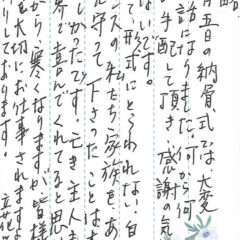 略
月五日の納骨式では、大変
話になりました。何から何
手配して頂き、感謝の気
いです。
い形式にとらわれない、自
ンスの私たち家族をあ
見守って下さったことは
しかったです。亡き主人も
界で喜んでくれてると思
から寒くなりますが皆様
を大切にお仕事されます
りしております。